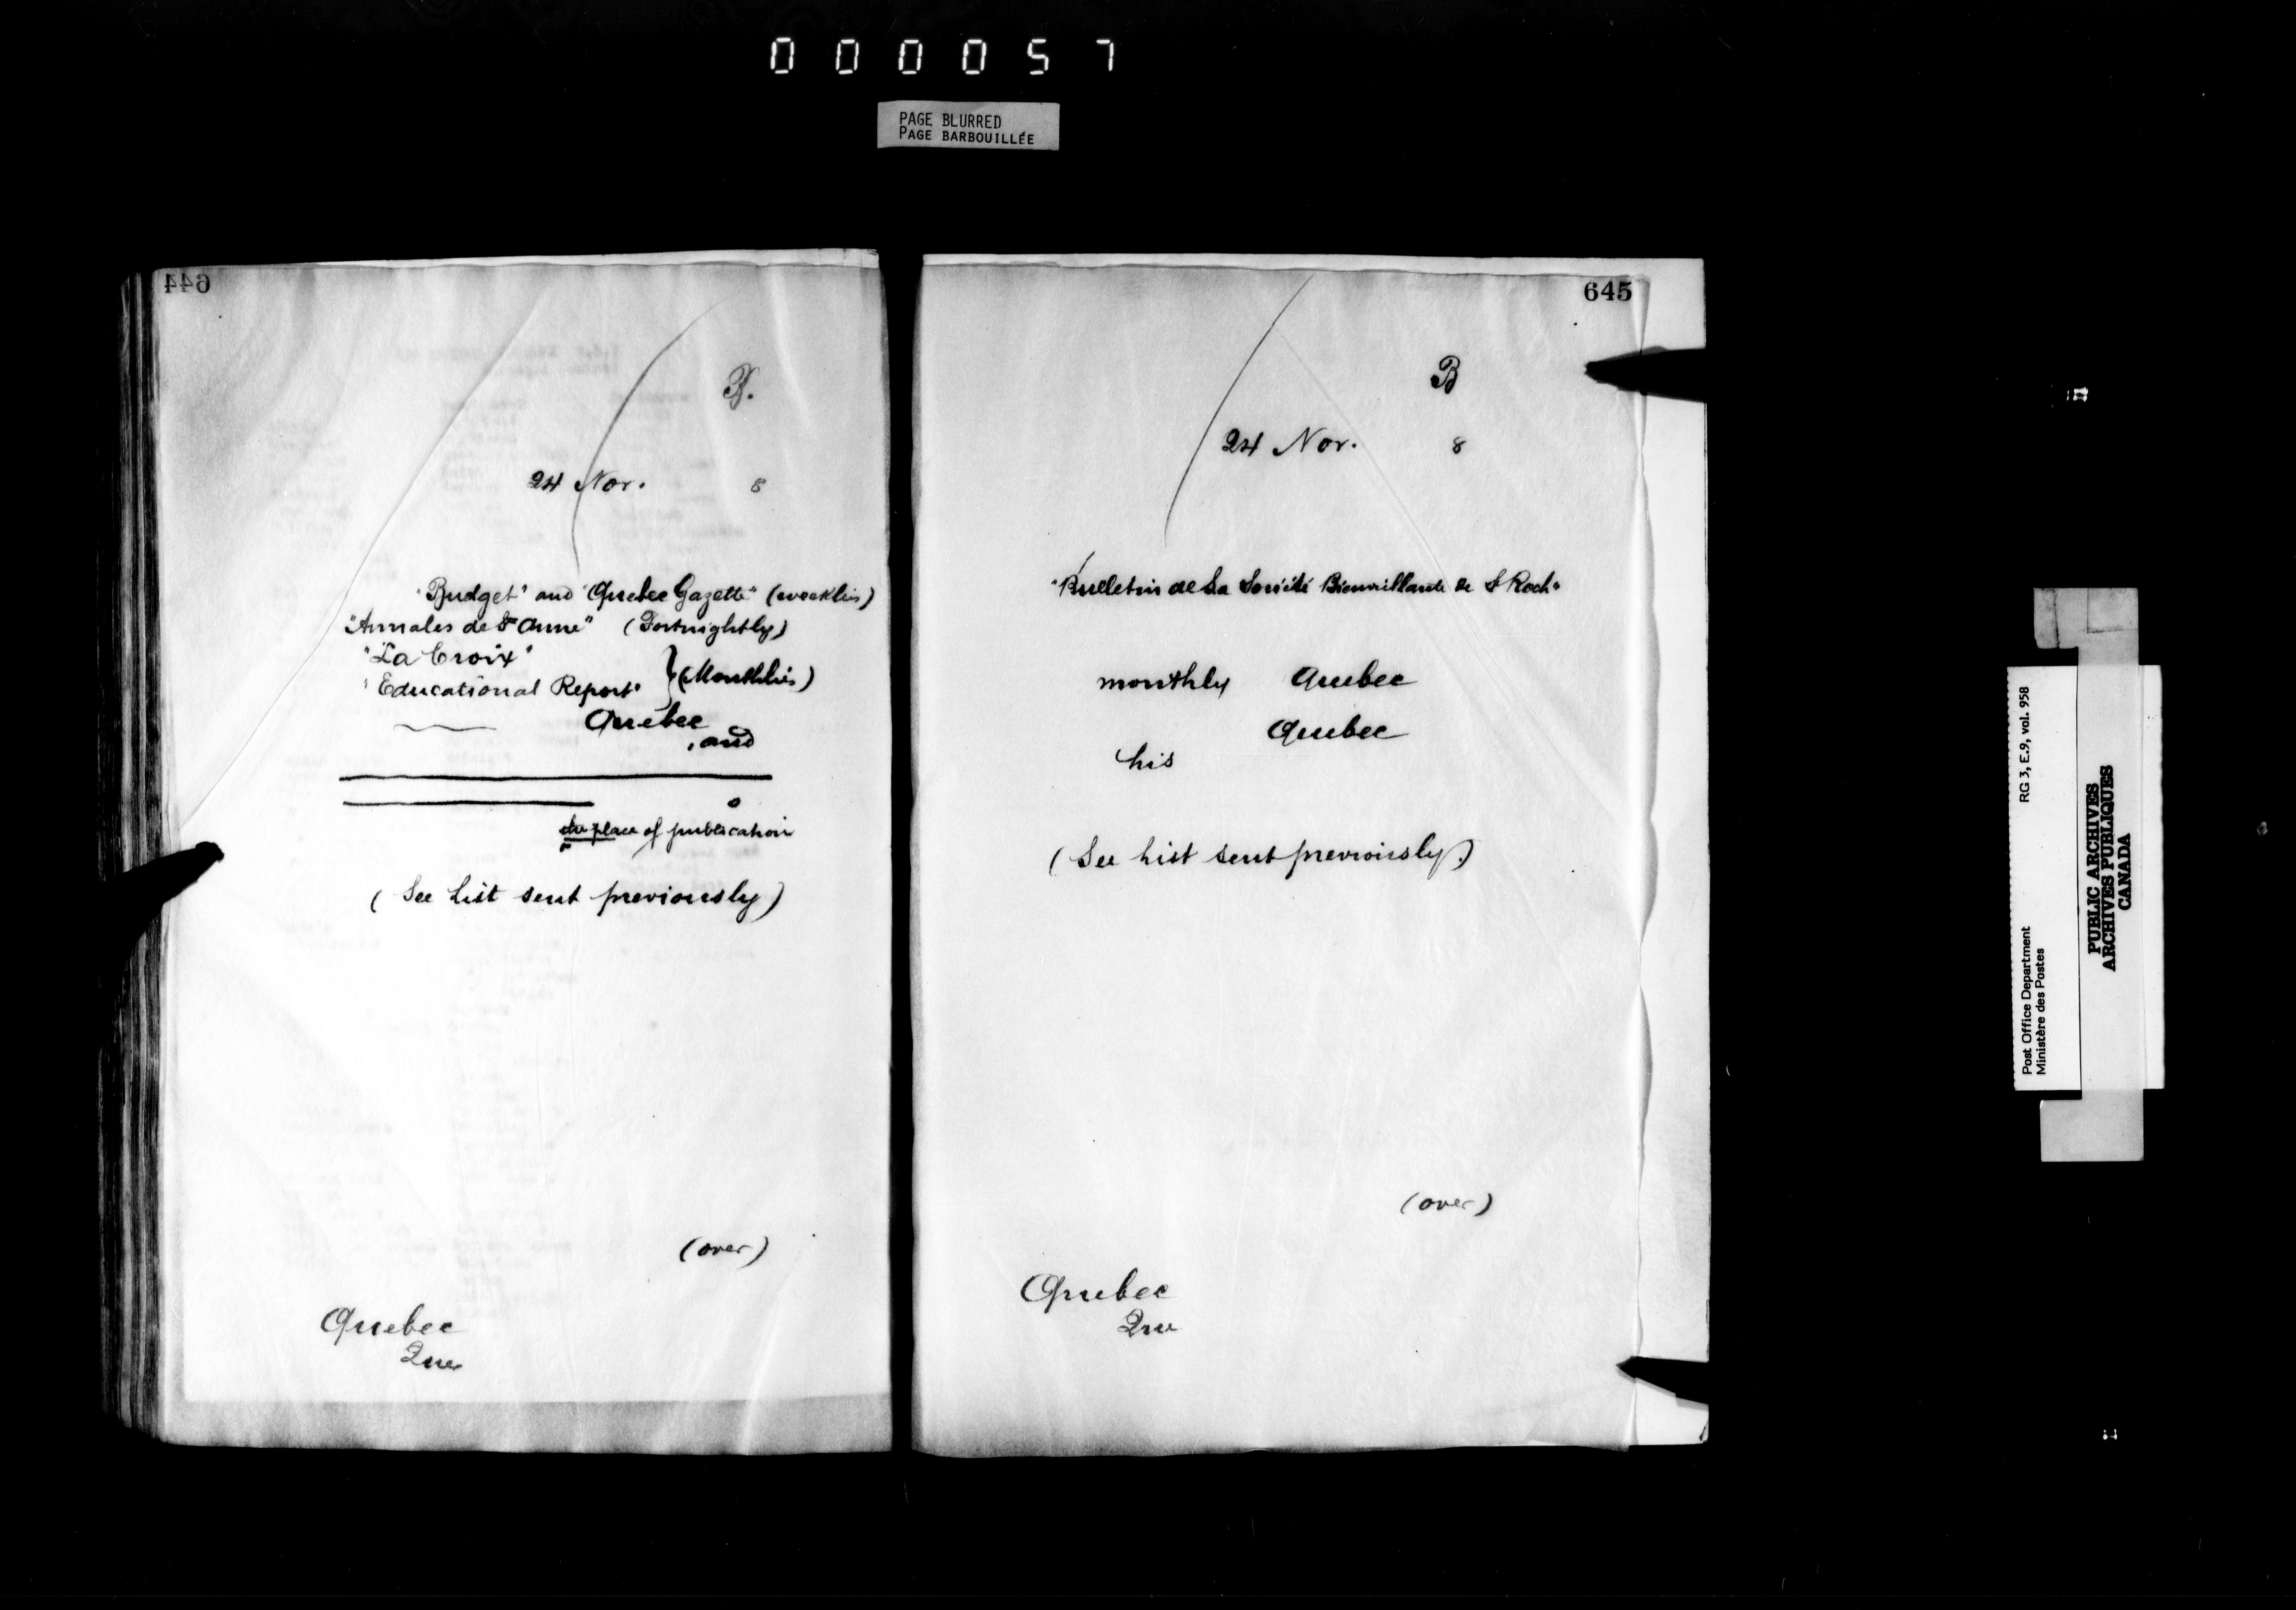 000057
PAGE BLURRED
PAGE BARBOUILLÉE
644
B.
24 Nov. 8
"Budget" and "Quebec Gazette" (weeklies)
"Annales de Ste Anne" (Fortnightly)
"La Croix"
"Educational Report" } (Monthlies)
Quebec
, and
place of publication
(See List sent previously)
(over)
Quebec
Que
645
B
24 Nov. 8
"Bulletin de La Société Bienveillante de St Roch"
monthly Quebec
Quebec
his
(See List sent previously.)
(over)
Quebec
Que
RG 3, E.9, vol. 958
Post Office Department
Ministère des Postes
PUBLIC ARCHIVES
ARCHIVES PUBLIQUES
CANADA